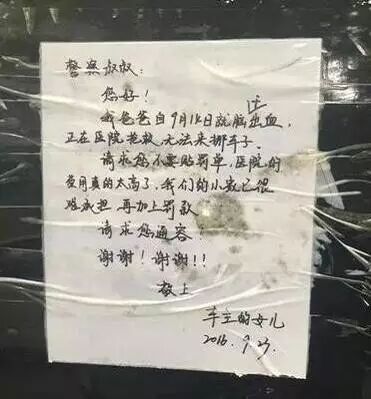 警察叔叔:
您好!
我爸爸自9月14日就脑出血,
正在医院抢救,无法来挪车子.
请求您不要贴罚单,医院的
费用真的太高了,我们的小家已很
难承担,再加上罚款
请求您通容!
谢谢!谢谢!!
敬上
车主的女儿
2016.9.23.